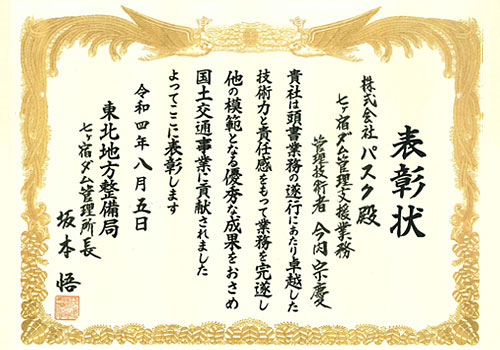 表彰状
株式会社 パスク殿
七ヶ宿ダム管理支援業務
管理技術者 今内宗慶
貴社は頭書業務の遂行にあたり卓越した
技術力と責任感をもって業務を完遂し
他の模範となる優秀な成果をおさめ
国土交通事業に貢献されました
よってここに表彰します
令和四年八月五日
東北地方整備局
七ヶ宿ダム管理所長
坂本 悟